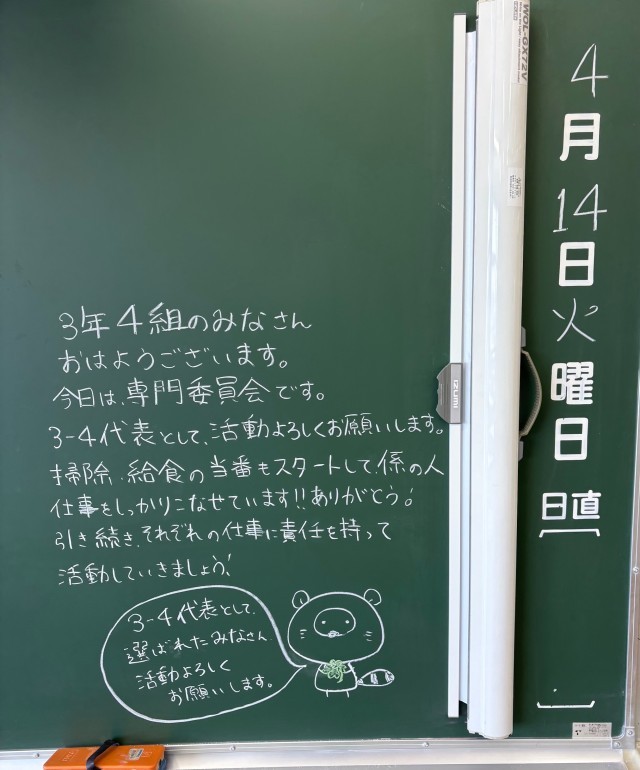 4月14日火曜日
日直
3年4組のみなさん
おはようございます。
今日は、専門委員会です。
3-4代表として、活動よろしくお願いします。
掃除、給食の当番もスタートして、係の人
仕事をしっかりこなせています!!ありがとう!
引き続き、それぞれの仕事に責任を持って
活動していきましょう!
3-4代表として、
選ばれたみなさん
活動よろしく
お願いします。
WOL-GX72V
IZUMI